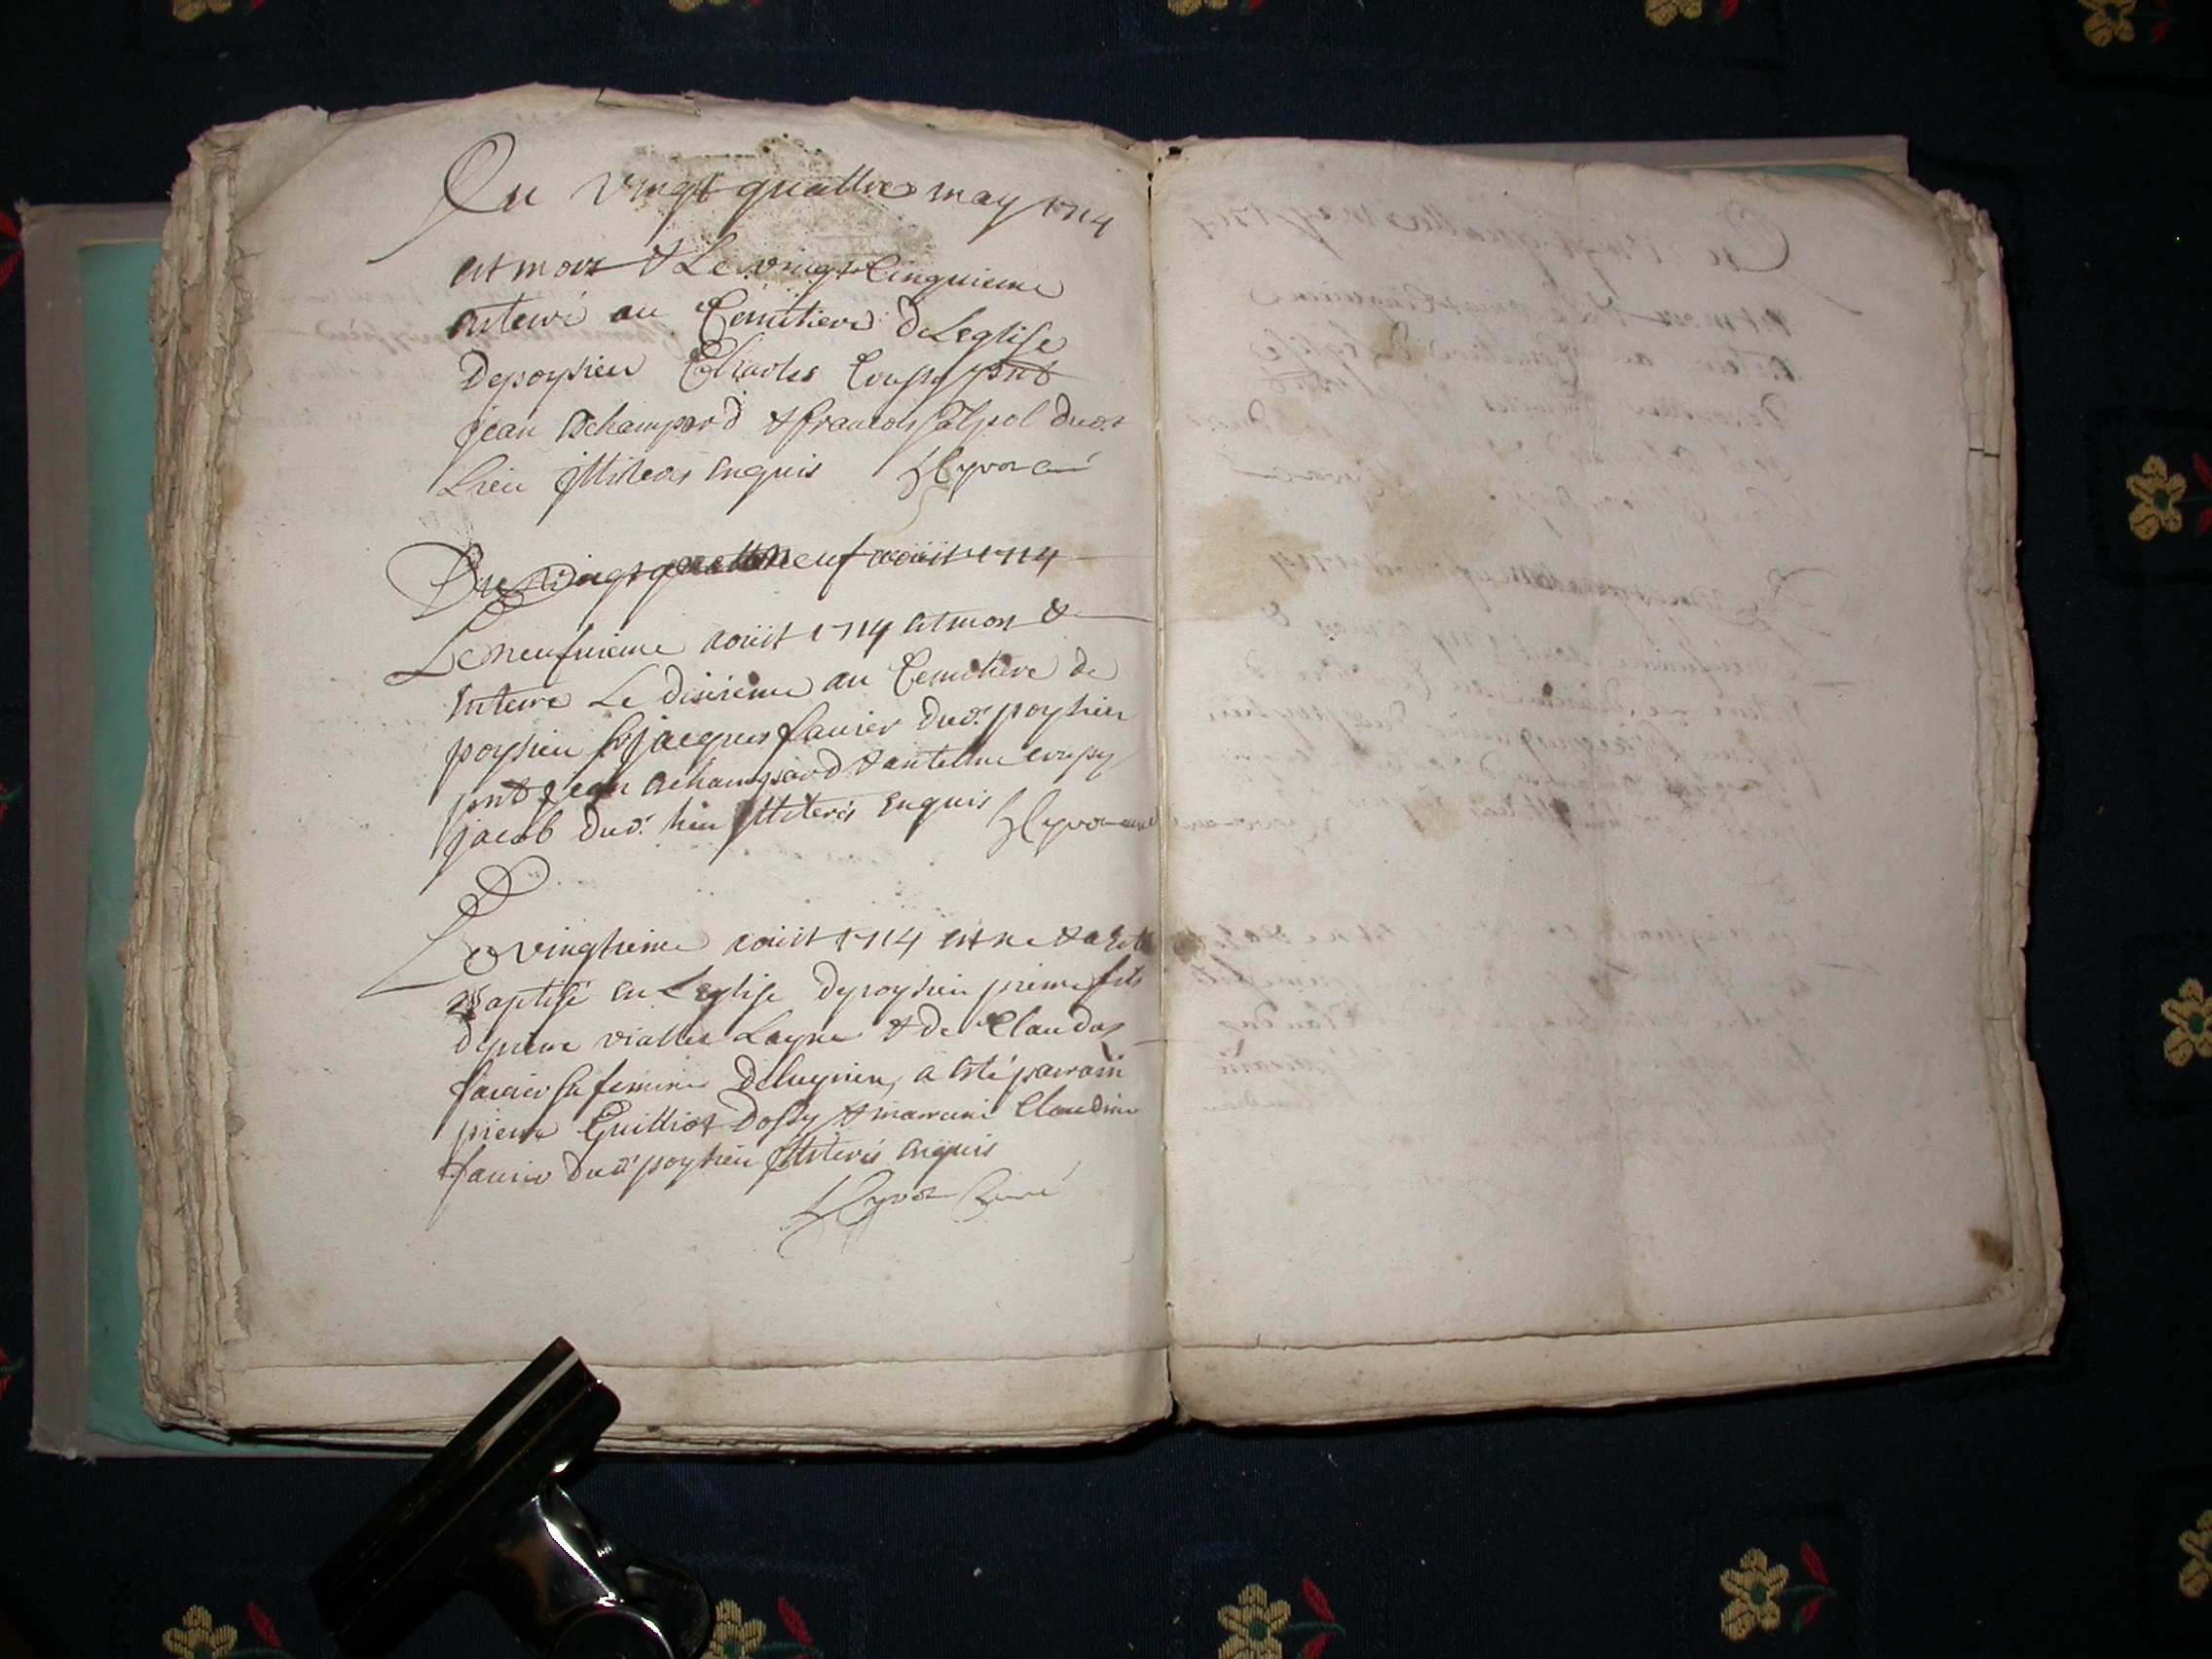 Du vingt quattre may 1714
est mort & Le vingt Cinquieme
enterré au Cemitiere de Leglise
depoysieu Charles Coussy pnt
jean Achampard & francois dud.t
Lieu illiterés enquis Hyvor curé
Du vingt quatt neuf aoüst 1714
Le neufvieme aoüst 1714 est mort &
Enterre Le dixieme au Cemetiere de
poysieu jacques favier dud.t poysieu
pnt jean Achampard & antelme coussy
jacob dud.t lieu illiterés Enquis Hyvor curé
Le vingtieme aoüst 1714 est ne & a esté
Baptisé en Leglise depoysieu pierre fils
de pierre viallet & de Clauda
favier sa femme a esté parrain
pierre Guilliot & marraine Claudine
favier dud.t poysieu illiterés enquis
Hyvor Curé